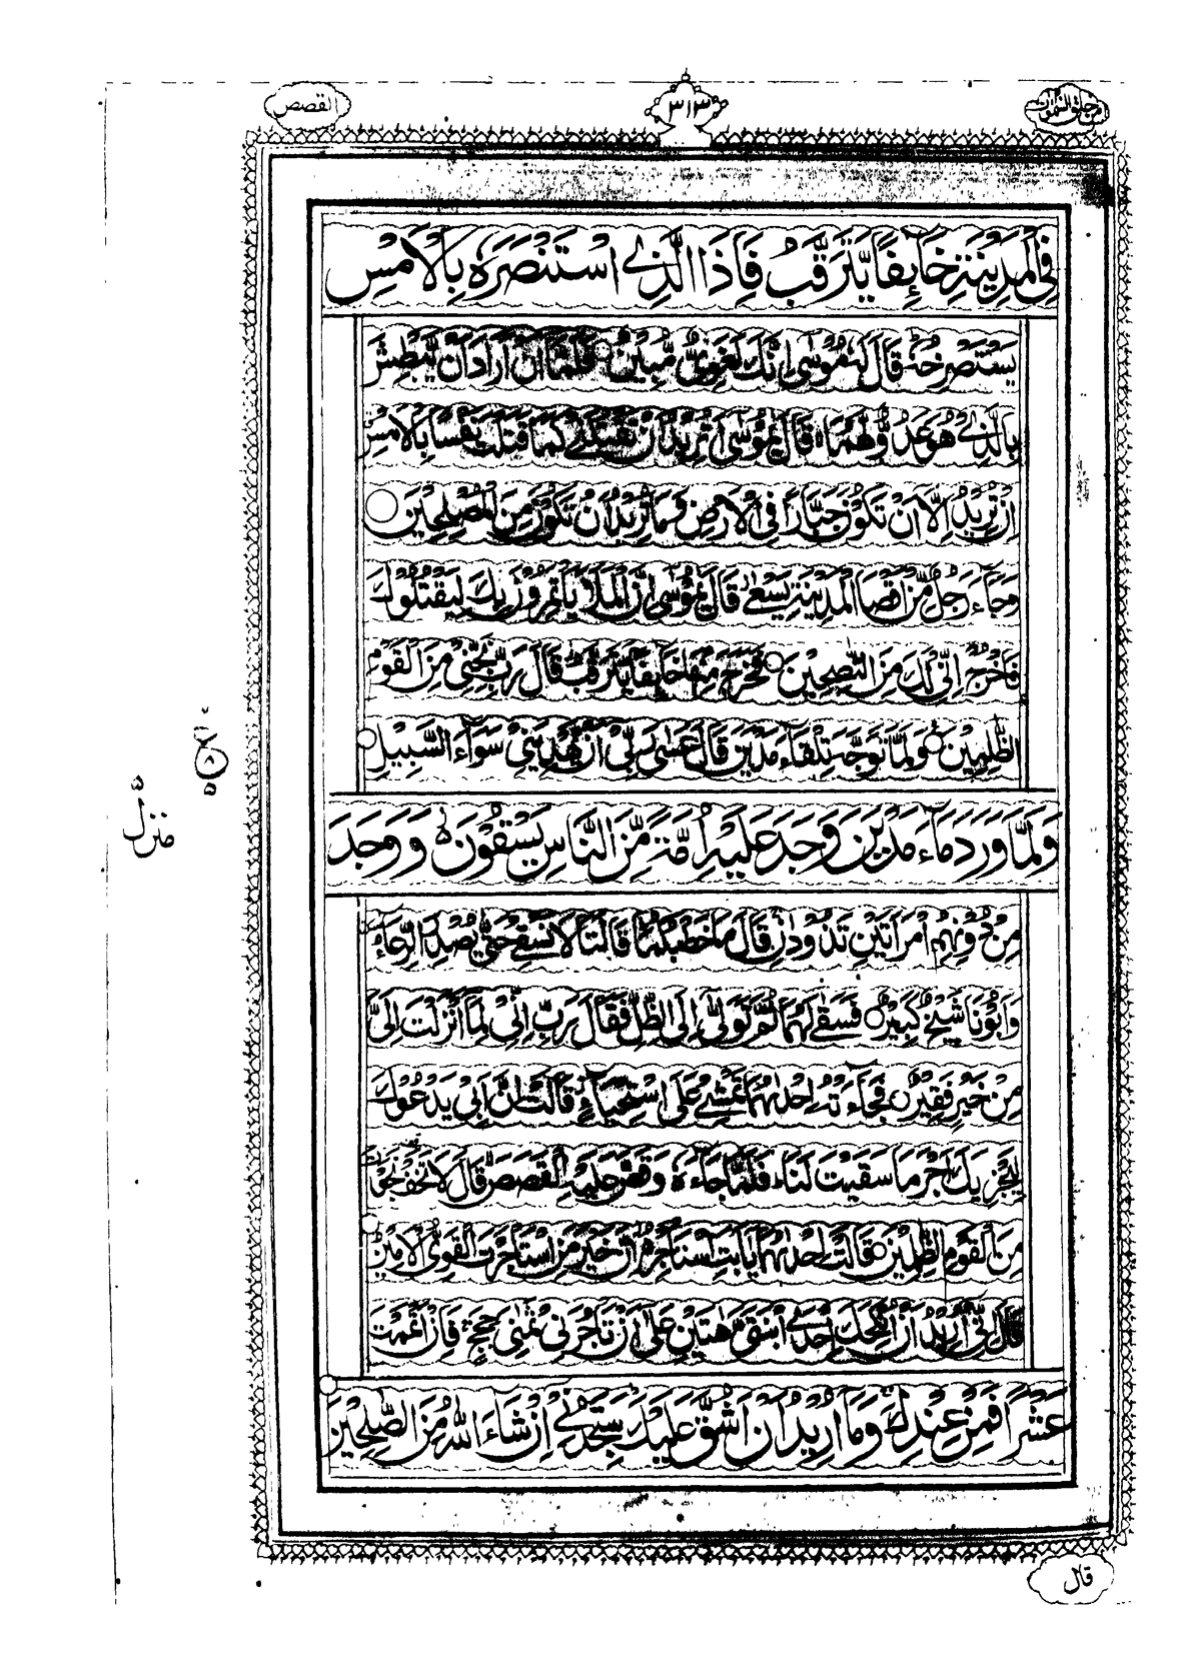 امن خلق السموات
٣١٣
القصص
فِى الْمَدِيْنَةِ خَآئِفًا يَّتَرَقَّبُ فَاِذَا الَّذِى اسْتَنْصَرَهٗ بِالْاَمْسِ
يَسْتَصْرِخُهٗ قَالَ لَهٗ مُوْسٰى اِنَّكَ لَغَوِىٌّ مُّبِيْنٌ فَلَمَّا اَنْ اَرَادَ اَنْ يَّبْطِشَ
بِالَّذِى هُوَ عَدُوٌّ لَّهُمَا قَالَ يٰمُوْسٰى اَتُرِيْدُ اَنْ تَقْتُلَنِى كَمَا قَتَلْتَ نَفْسًا بِالْاَمْسِ
اِنْ تُرِيْدُ اِلَّا اَنْ تَكُوْنَ جَبَّارًا فِى الْاَرْضِ وَمَا تُرِيْدُ اَنْ تَكُوْنَ مِنَ الْمُصْلِحِيْنَ
وَجَآءَ رَجُلٌ مِّنْ اَقْصَا الْمَدِيْنَةِ يَسْعٰى قَالَ يٰمُوْسٰى اِنَّ الْمَلَاَ يَاْتَمِرُوْنَ بِكَ لِيَقْتُلُوْكَ
فَاخْرُجْ اِنِّى لَكَ مِنَ النّٰصِحِيْنَ فَخَرَجَ مِنْهَا خَآئِفًا يَّتَرَقَّبُ قَالَ رَبِّ نَجِّنِى مِنَ الْقَوْمِ
الظّٰلِمِيْنَ وَلَمَّا تَوَجَّهَ تِلْقَآءَ مَدْيَنَ قَالَ عَسٰى رَبِّى اَنْ يَّهْدِيَنِى سَوَآءَ السَّبِيْلِ
وَلَمَّا وَرَدَ مَآءَ مَدْيَنَ وَجَدَ عَلَيْهِ اُمَّةً مِّنَ النَّاسِ يَسْقُوْنَ وَوَجَدَ
مِنْ دُوْنِهِمُ امْرَاَتَيْنِ تَذُوْدٰنِ قَالَ مَا خَطْبُكُمَا قَالَتَا لَا نَسْقِى حَتّٰى يُصْدِرَ الرِّعَآءُ
وَاَبُوْنَا شَيْخٌ كَبِيْرٌ فَسَقٰى لَهُمَا ثُمَّ تَوَلّٰى اِلَى الظِّلِّ فَقَالَ رَبِّ اِنِّى لِمَا اَنْزَلْتَ اِلَىَّ
مِنْ خَيْرٍ فَقِيْرٌ فَجَآءَتْهُ اِحْدٰىهُمَا تَمْشِى عَلَى اسْتِحْيَآءٍ قَالَتْ اِنَّ اَبِى يَدْعُوْكَ
لِيَجْزِيَكَ اَجْرَ مَا سَقَيْتَ لَنَا فَلَمَّا جَآءَهٗ وَقَصَّ عَلَيْهِ الْقَصَصَ قَالَ لَا تَخَفْ نَجَوْتَ
مِنَ الْقَوْمِ الظّٰلِمِيْنَ قَالَتْ اِحْدٰىهُمَا يٰاَبَتِ اسْتَاْجِرْهُ اِنَّ خَيْرَ مَنِ اسْتَاْجَرْتَ الْقَوِىُّ الْاَمِيْنُ
قَالَ اِنِّى اُرِيْدُ اَنْ اُنْكِحَكَ اِحْدَى ابْنَتَىَّ هٰتَيْنِ عَلٰى اَنْ تَاْجُرَنِى ثَمٰنِىَ حِجَجٍ فَاِنْ اَتْمَمْتَ
عَشْرًا فَمِنْ عِنْدِكَ وَمَا اُرِيْدُ اَنْ اَشُقَّ عَلَيْكَ سَتَجِدُنِى اِنْ شَآءَ اللّٰهُ مِنَ الصّٰلِحِيْنَ
منزل ٥
قال